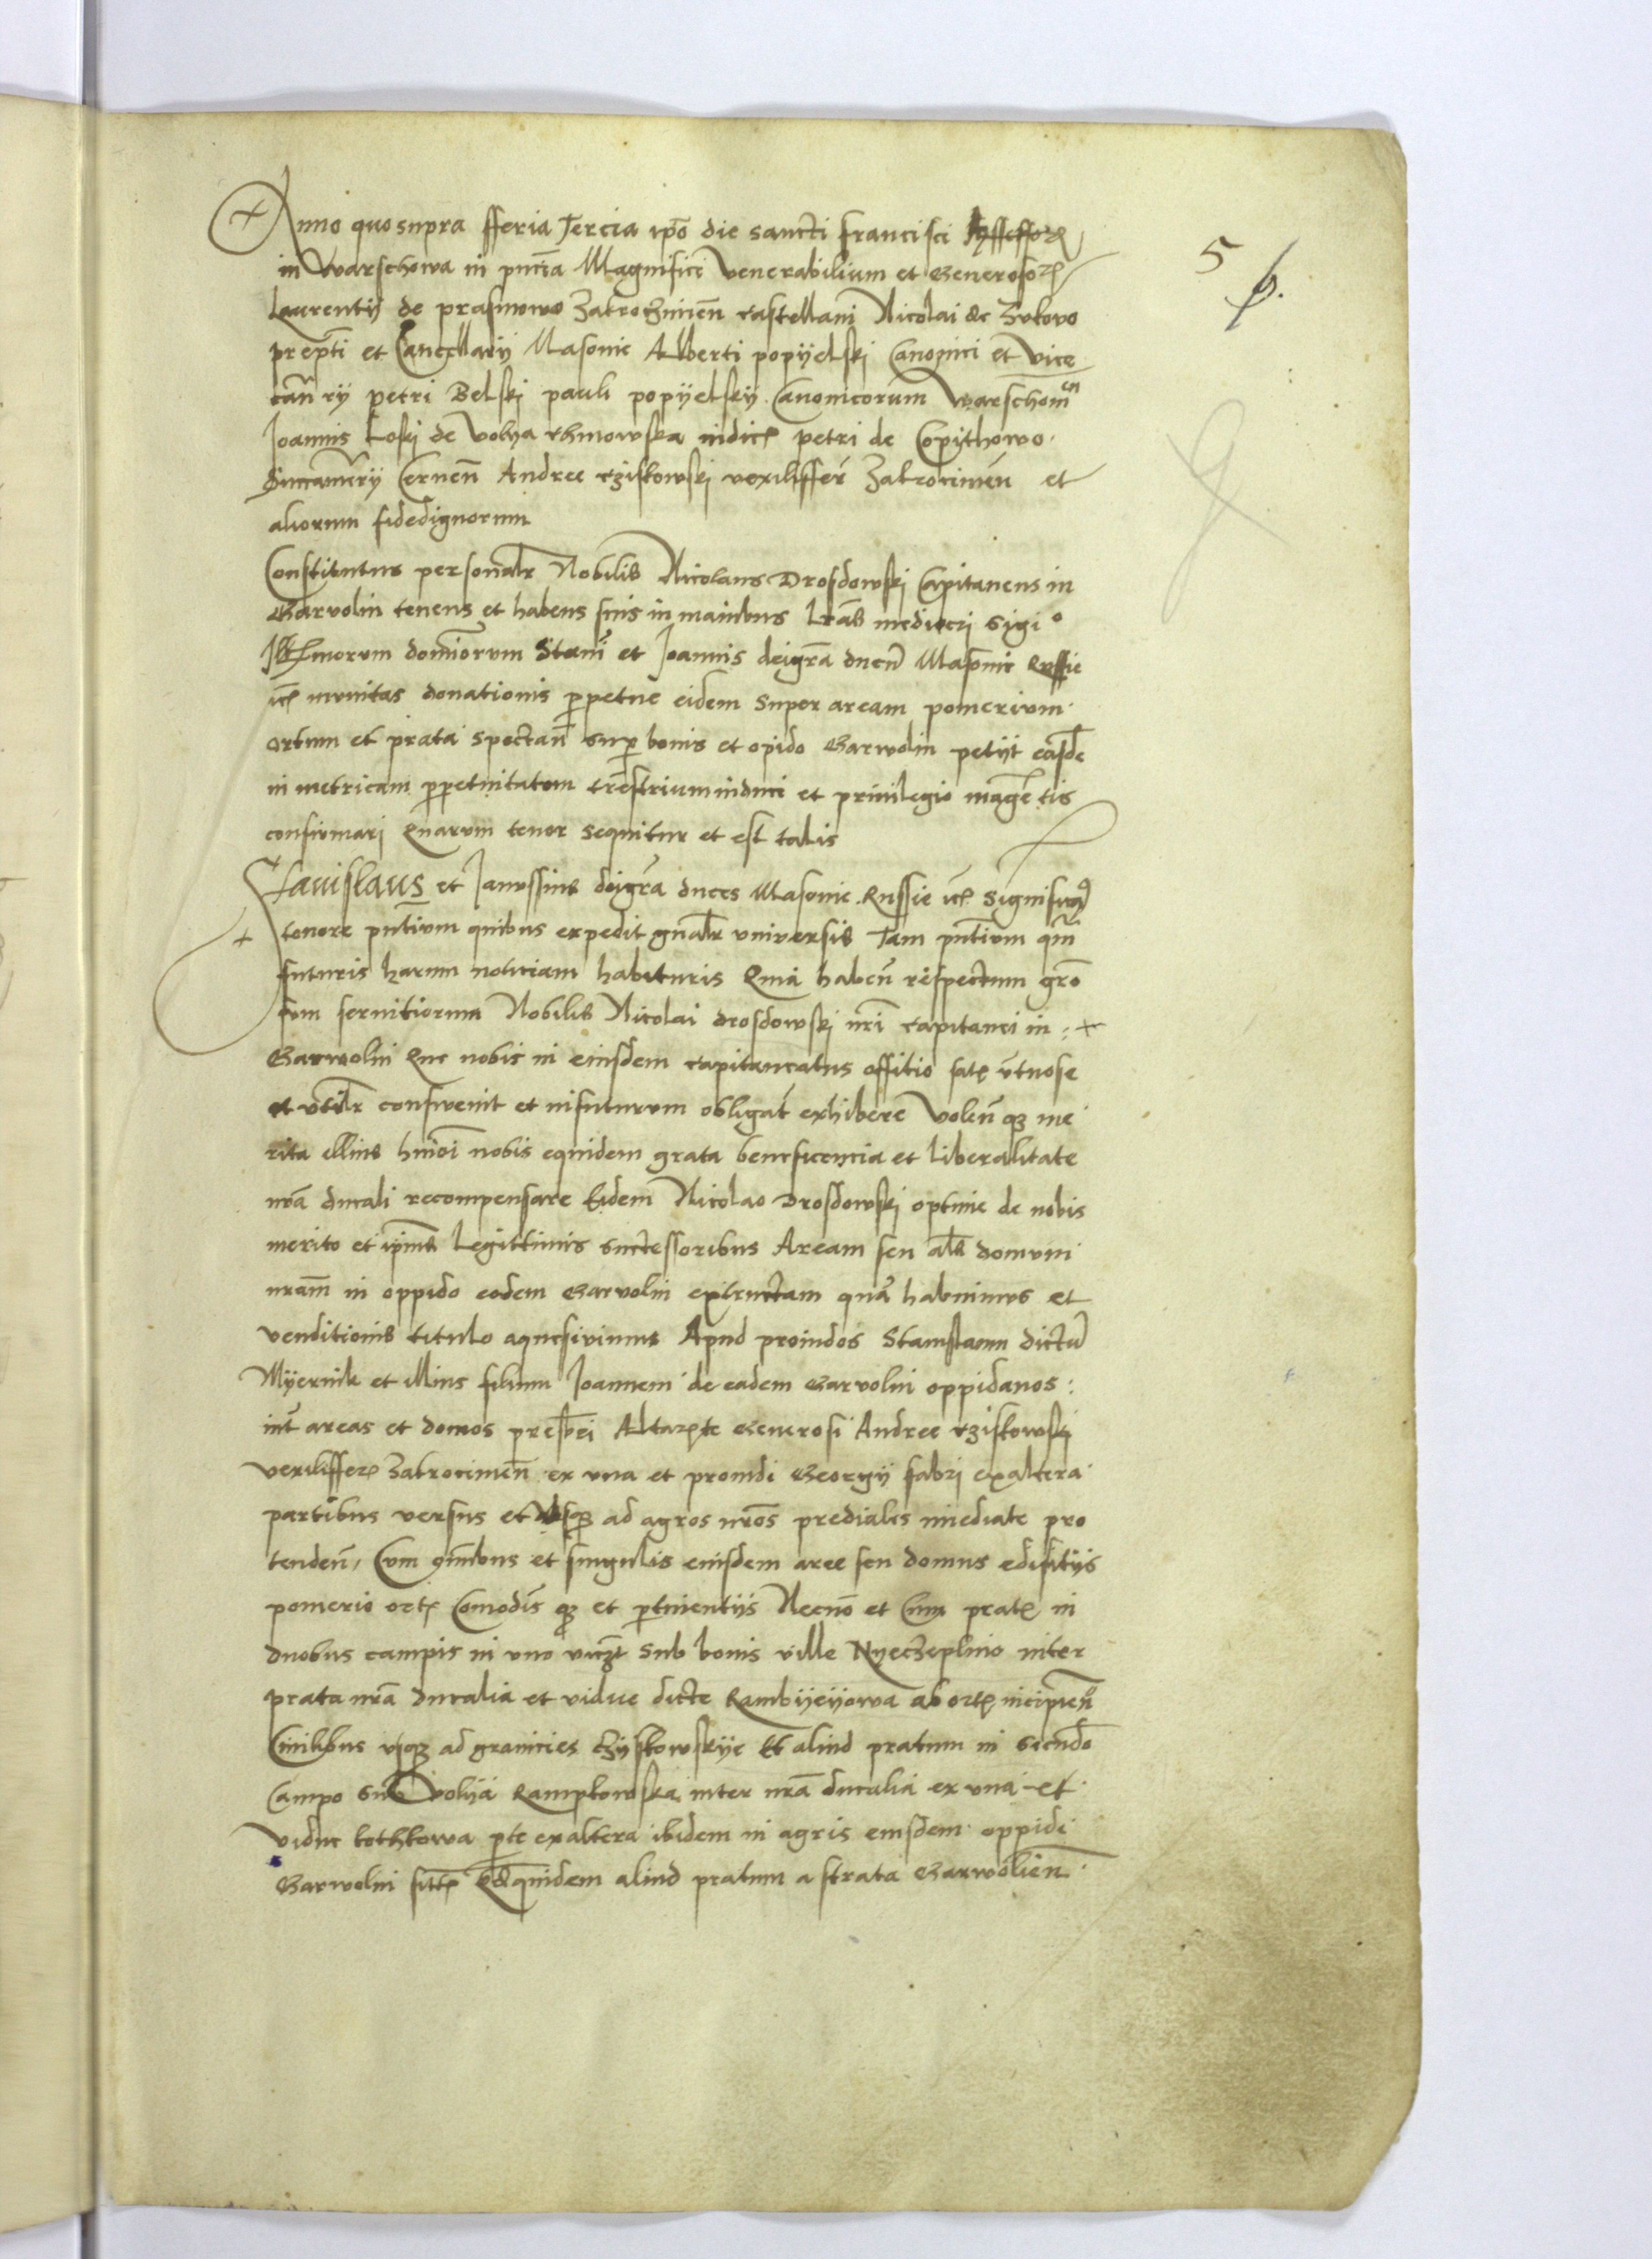 Anno quo supra fferia Tercia ip̄o die sancti francisci
5
6.
in Warschowa in pn̄cia Magnifici venerabilium et Generosoꝝ
Laurentij de prasmowo Zakroczimien̄ castellani Nicolai de Zukowo
prep̄ti et Cancellarij Masovie Alberti popijelski Canonici et vice
can̄rij petri Belski pauli popijelskij Canonicorum Warschowien̄
Joannis Loski de volya judicis petri de Copithowo
Succamer̄ij Cernen̄ Andree vexilliffer̄ Zakrocimen̄ et
aliorum fidedignorum
Constitutus personalr̄ Nobilis Nicolaus Drosdowski Capitaneus in
Garvolin tenens et habens suis in manibus Lrās mediocri sigi°
Illꝛmorum dominorum Stani et Joannis dei gr̄a ducū Masovie Russie
ꝛcꝭ munitas donationis ꝑpetue eidem super aream pomerium
ortum et prata spectan̄ sup̱ bonis et opido Garwolin petijt easdē
in metricam ꝑpetuitatem tr̄estrium induci et privilegio
confirmari Quarum tenor sequitur et est talis
Stanislaus et Janussius dei gr̄a duces Masovie Russie ꝛcꝭ significamꝰ
tenore pn̄tium quibus expedit gn̄alr̄ universis Tam pn̄tium qm̄
futuris harum noticiam habituris Quia haben̄ respectum gr̄o
sum servitiorum Nobilis Nicolai drosdowski nr̄i capitanei in
Garwolin Que nobis in eiusdem capitaneatus offitio satꝭ v̄tuose
et utilr̄ consuevit et in futurum obligat̄ exhibere Volen̄ qꝫ me
rita illius hm̄oi nobis equidem grata beneficencia et liberalitate
nr̄a ducali recompensare Eidem Nicolao Drosdowski optime de nobis
merito et ip̄ius Legittimis successoribus Aream seu al̄s domum
nr̄am in oppido eodem Garvolin extructam quā habuimus et
venditionis titulo aquesivimus Apud proindos Stanislaum dictū
Myernik et illius filium Joannem de eadem Garvolin oppidanos :
int̄ areas et domos presb̄ri Altarꝭte Generosi Andree
vexilifferꝭ Zakrocimen̄ ex una et providi Georgij fabri ex altera
partibus versus et usqꝫ ad agros nr̄os prediales imediate pro
tenden̄, Cum om̄ibus et singulis eiusdem aree seu domus edifitijs
pomerio ortꝭ Comodis̄ qꝫ et ꝑtinentijs Necnō et Cum pratꝭ in
duobus campis in uno viczt̄ sub bonis ville Nyeczeplino inter
prata nr̄a ducalia et vidue dicte Rambyeyowa ab ortꝭ incipien̄
Civilibus usqꝫ ad granicies Et aliud pratum in secundo
Campo sub Volya Ramptowska inter nr̄a ducalia ex una et
vidue kothkowa ꝑte ex altera ibidem in agris eiusdem oppidi
Garwolin aliud pratum a strata Garwolien̄